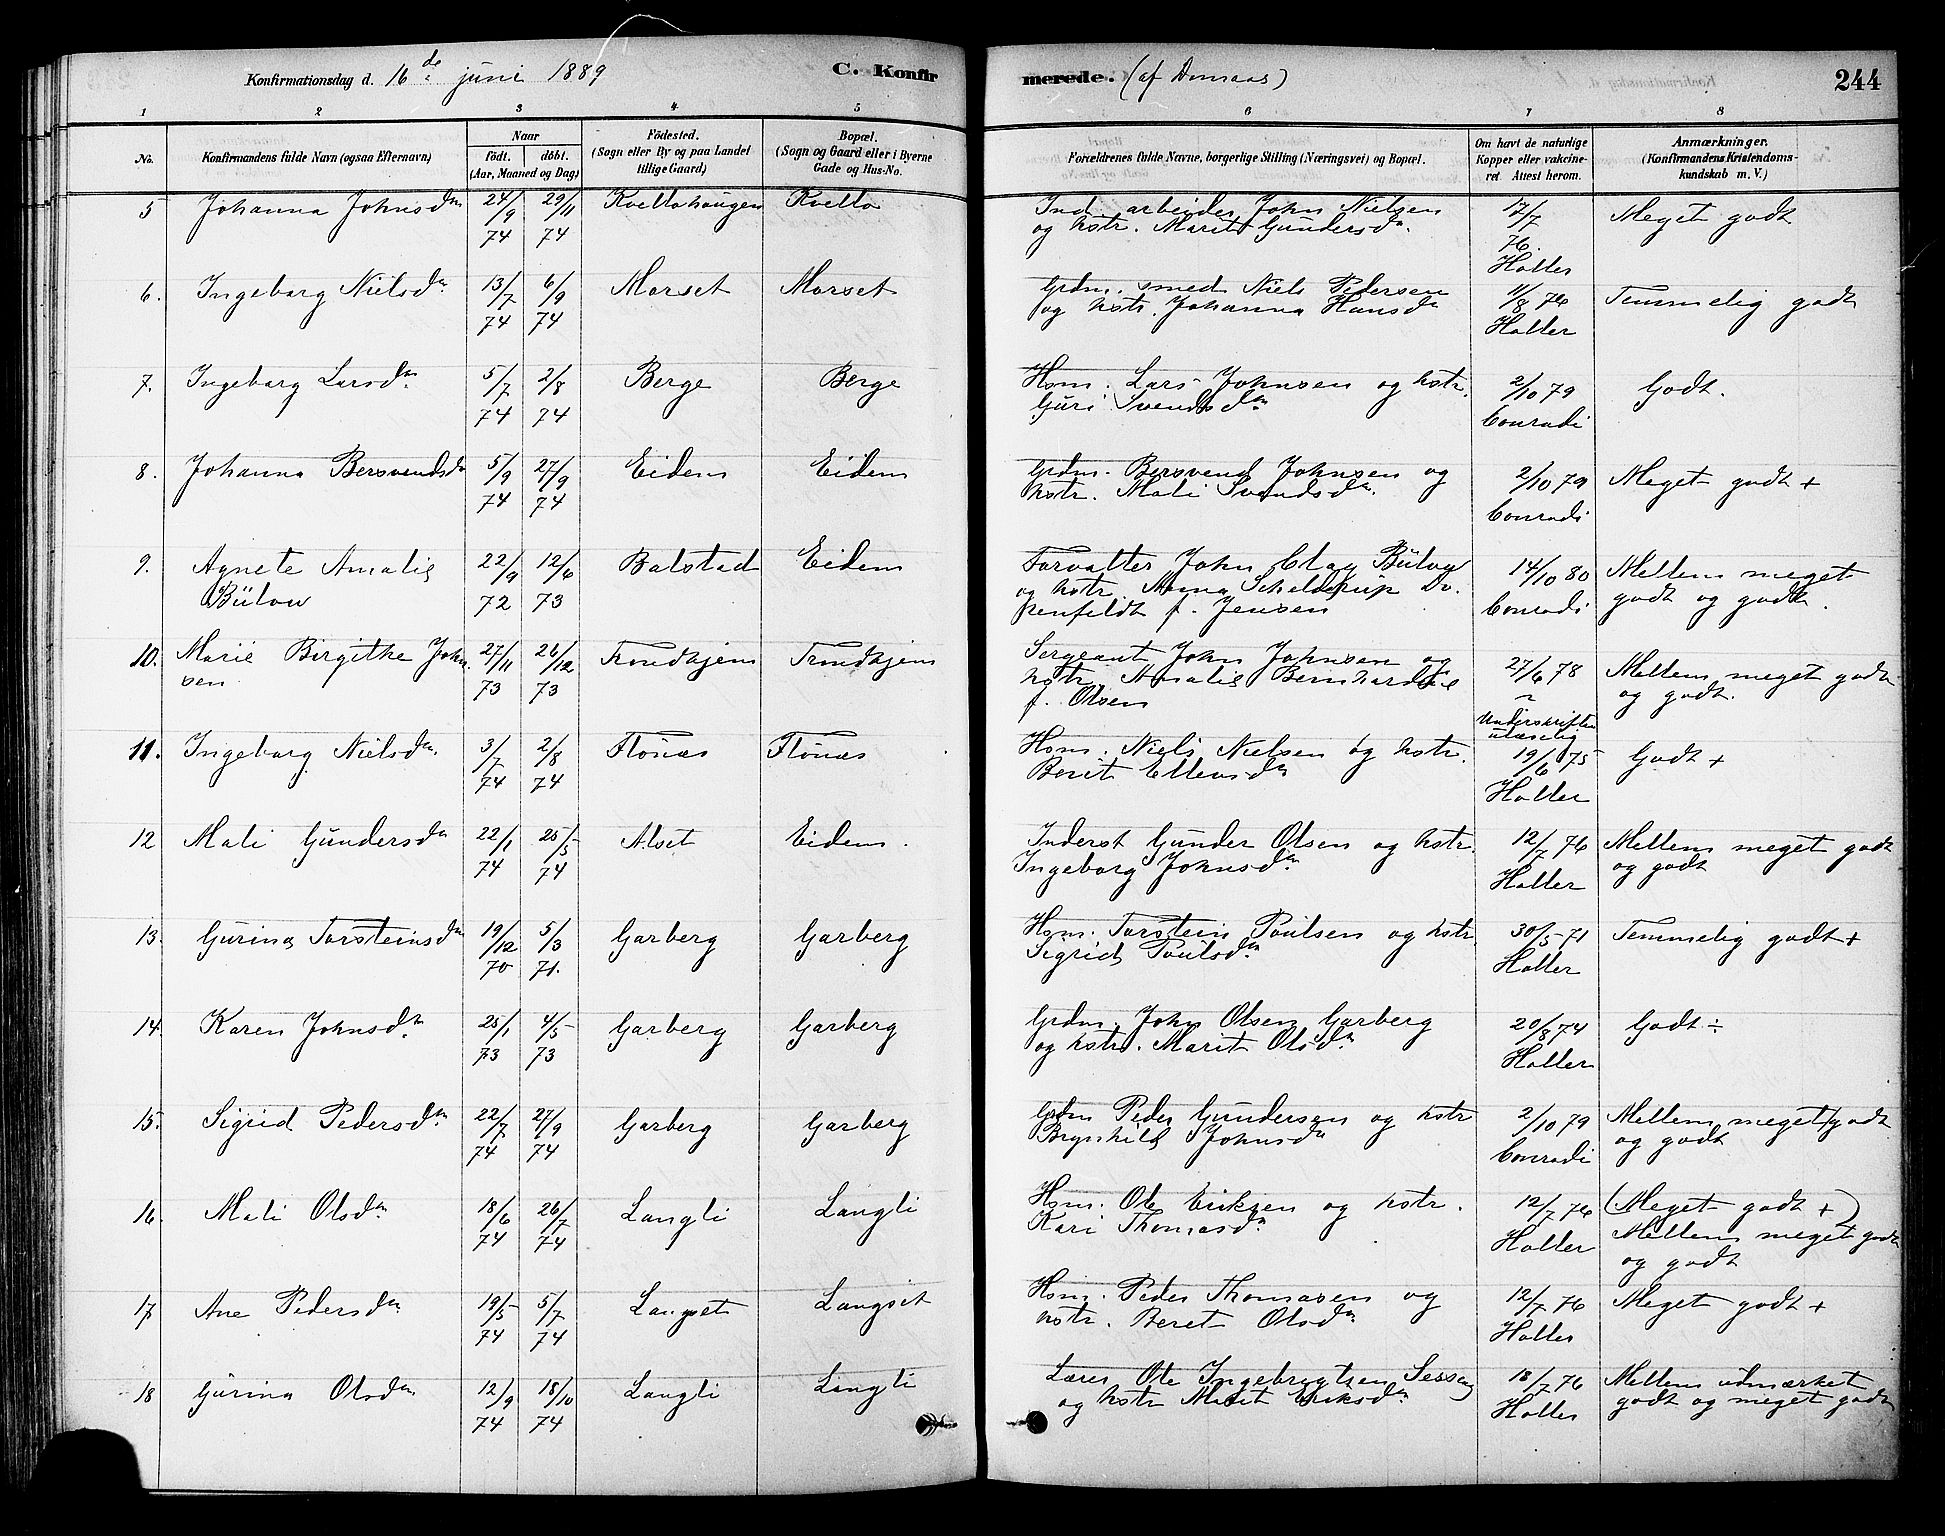 Konfirmationsdag d. 16de juni 1889
C. Konfir
merede. (af Dømaas)
244
1 2 3 4 5 6 7 8
No.
Konfirmandens fulde Navn (ogsaa Efternavn)
Naar
født. døbt.
(Aar, Maaned og Dag)
Fødested.
(Sogn eller By og paa Landet
tillige Gaard)
Bopæl.
(Sogn og Gaard eller i Byerne
Gade og Hus-No.
Forældrenes fulde Navne, borgerlige Stilling (Næringsvei) og Bopæl.
Om havt de naturlige
Kopper eller vakcine-
ret. Attest herom.
Anmærkninger.
(Konfirmandens Kristendoms-
kundskab m. V.)
5 Johanna Johnsdn 24/9 74 29/11 74 Kvellohaugen Kvello Ind. arbeider John Nielsen
og kstr. Marit Gundersdn. 17/7 76. Holter Meget godt
6. Ingeborg Nielsdn 13/7 74 6/9 74 Morset Morset Grdm. smed Niels Pedersen
og kstr. Johanna Hansdn 11/8 76 Holter Temmelig godt
7. Ingeborg Larsdn. 5/7 74 2/8 74 Berge Berge Hsm. Lars Johnsen og kstr.
Guri Svendsdn 2/10 79 Conradi Godt.
8. Johanna Bersvendsdn 5/9 74 27/9 74 Eidem Eidem Grdm. Bersvend Johnsen og
kstr. Mali Svendsdn. 2/10 79 Conradi Meget godt +
9. Agnete Amalie
Bülow 22/9 72 12/6 73 Balstad Eidem Forvalter John Clay Bülow
og kstr. Anna Schelderup Do.
penfeldt f. Jensen 14/10 80 Conradi Mellem meget
godt og godt.
10. Marie Birgitke John
sen 27/11 73 26/12 73 Trondhjem Trondhjem Sergeant John Johnsen og
kstr. Amalie Bernhardine
f. Olsen 27/6 78
Underskriften
ulæselig Mellem meget godt
og godt.
11. Ingeborg Nielsdn. 3/7 74 2/8 74 Flónæs Flónæs Hsm. Niels Nielsen og kstr.
Berit Ellensdn 19/6 75 Holter Godt +
12 Mali Gundersdn 22/1 74 25/5 74 Alset Eidem. Inderst Gunder Olsen og kstr.
Ingeborg Johnsdn. 12/7 76 Holter Mellem meget godt
og godt
13. Gurina Torsteinsdn 19/12 70 5/3 71. Garberg Garberg Hsm. Torstein Poulsen og kstr.
Sigrid Poulsdn. 30/5 71 Holter Temmelig godt +
14. Karen Johnsdn 25/1 73 4/5 73 Garberg Garberg Grdm. John Olsen Garberg
og kstr. Marit Olsdn. 20/8 74 Holter Godt ÷
15. Sigrid Pedersdn. 22/7 74 27/9 74 Garberg Garberg Grdm Peder Gundersen og kstr
Brynhild Johnsdn 2/10 79 Conradi Mellem meget godt
og godt
16. Mali Olsdn. 18/6 74 26/7 74 Langli Langli Hsm. Ole Eriksen og kstr.
Kari Thomasdn. 12/7 76 Holter (Meget godt +)
Mellem meget godt
og godt
17. Ane Pedersdn 19/5 74 5/7 74 Langset Langset Hsm. Peder Thomasen og
kstr. Beret Olsdn. 12/7 76 Holter Meget godt +
18 Gurina Olsdn 12/9 74 18/10 74 Langli Langli Lærer Ole Ingebrigtsen Sesseng
og kstr Marit Eriksdn. 18/7 76 Holter Mellem udmærket
godt og meget godt